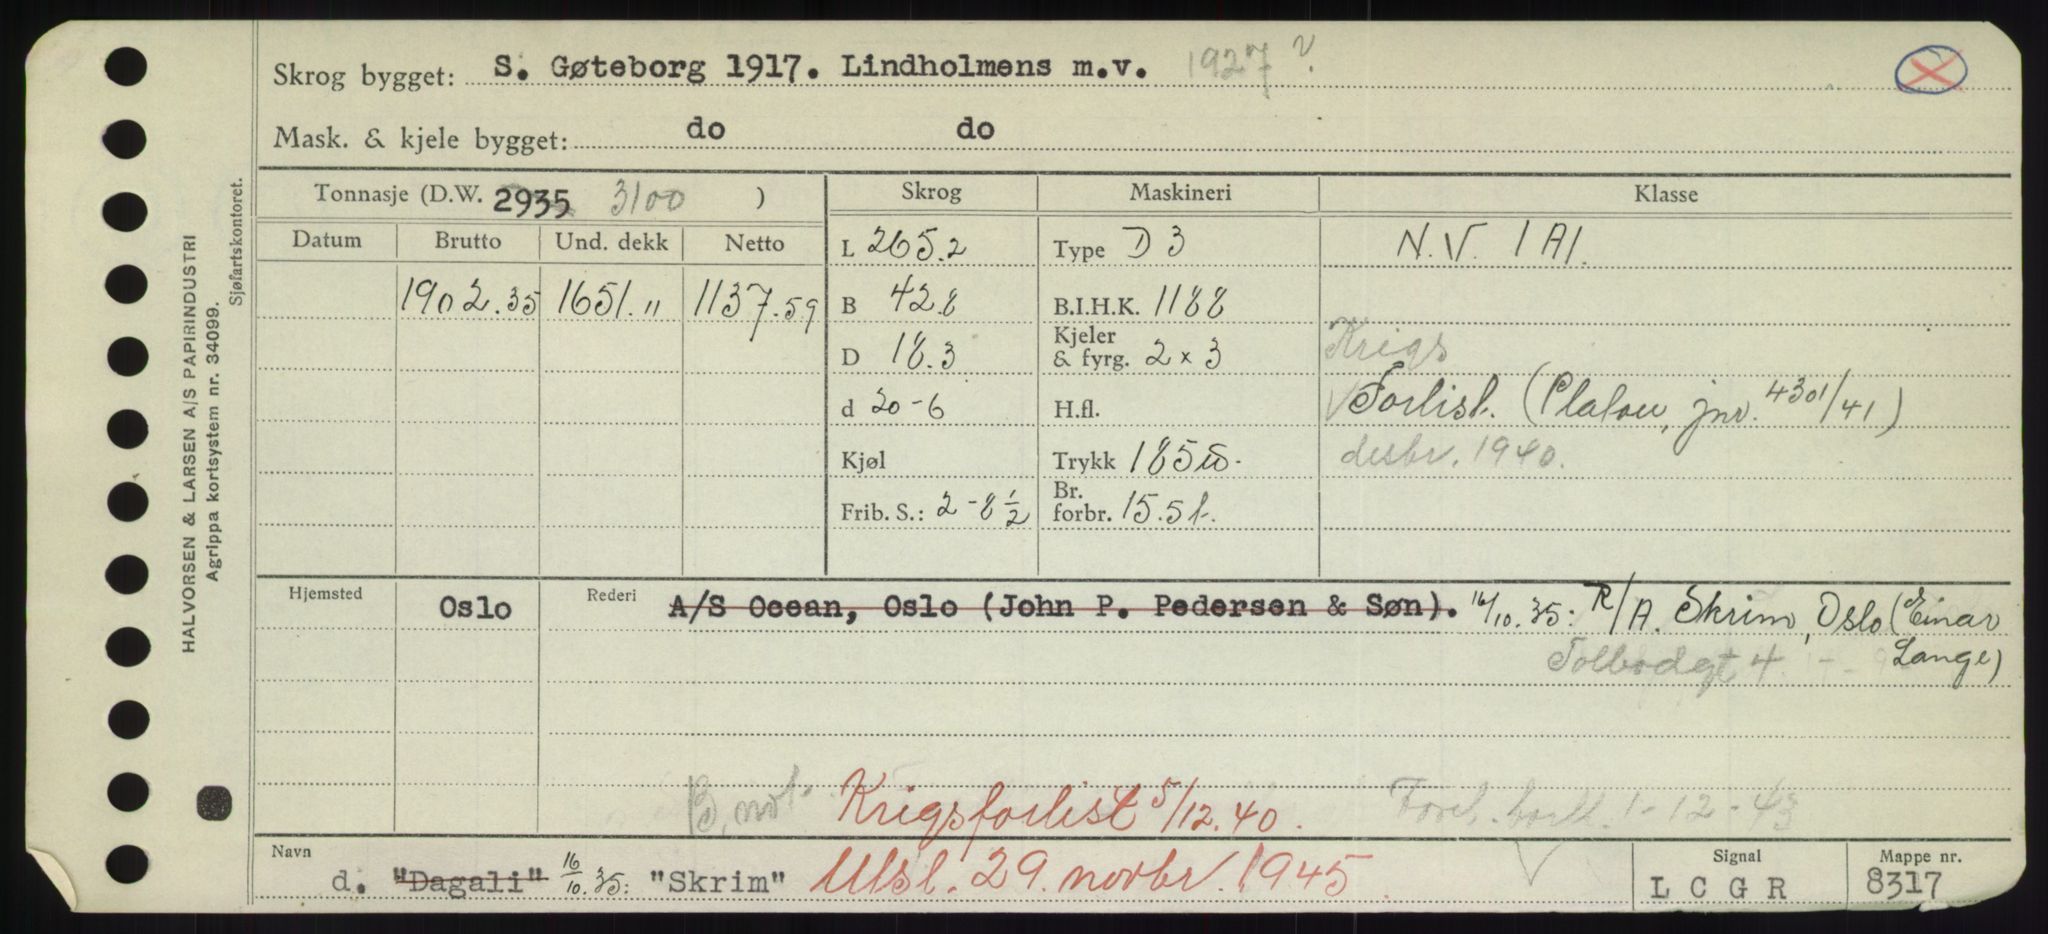 Skrog bygget: S. Gøteborg 1917. Lindholmens m.v. 1927 ?
Mask. & kjele bygget: do do
Tonnasje (D.W. 2935 3100 ) Skrog Maskineri Klasse
Datum Brutto Und. dekk Netto L 265.2 Type D 3 N.V. 1A1.
1902.35 1651." 1137.59 B 42.8 B.I.H.K. 1188
D 18.3 Kjeler & fyrg. 2 x 3 Krigs
d 20-6 H.fl. Forlist. (Platou, jnr. 4301/41)
Kjøl Trykk 185 desbr. 1940.
Frib. S.: 2-8 1/2 Br. forbr. 15.5 t.
Hjemsted Oslo Rederi A/S Ocean, Oslo (John P. Pedersen & Søn). 16/10.35: R/A. Skrim, Oslo (Einar
Tolbodgt 4 Lange)
Krigsforlist 5/12.40. 1-12-43
Navn d. "Dagali" 16/10.35: "Skrim" Utsl. 29. novbr. 1945 Signal L C G R Mappe nr. 8317
HALVORSEN & LARSEN A/S PAPIRINDUSTRI
Agrippa kortsystem nr. 34099.
Sjøfartskontoret.